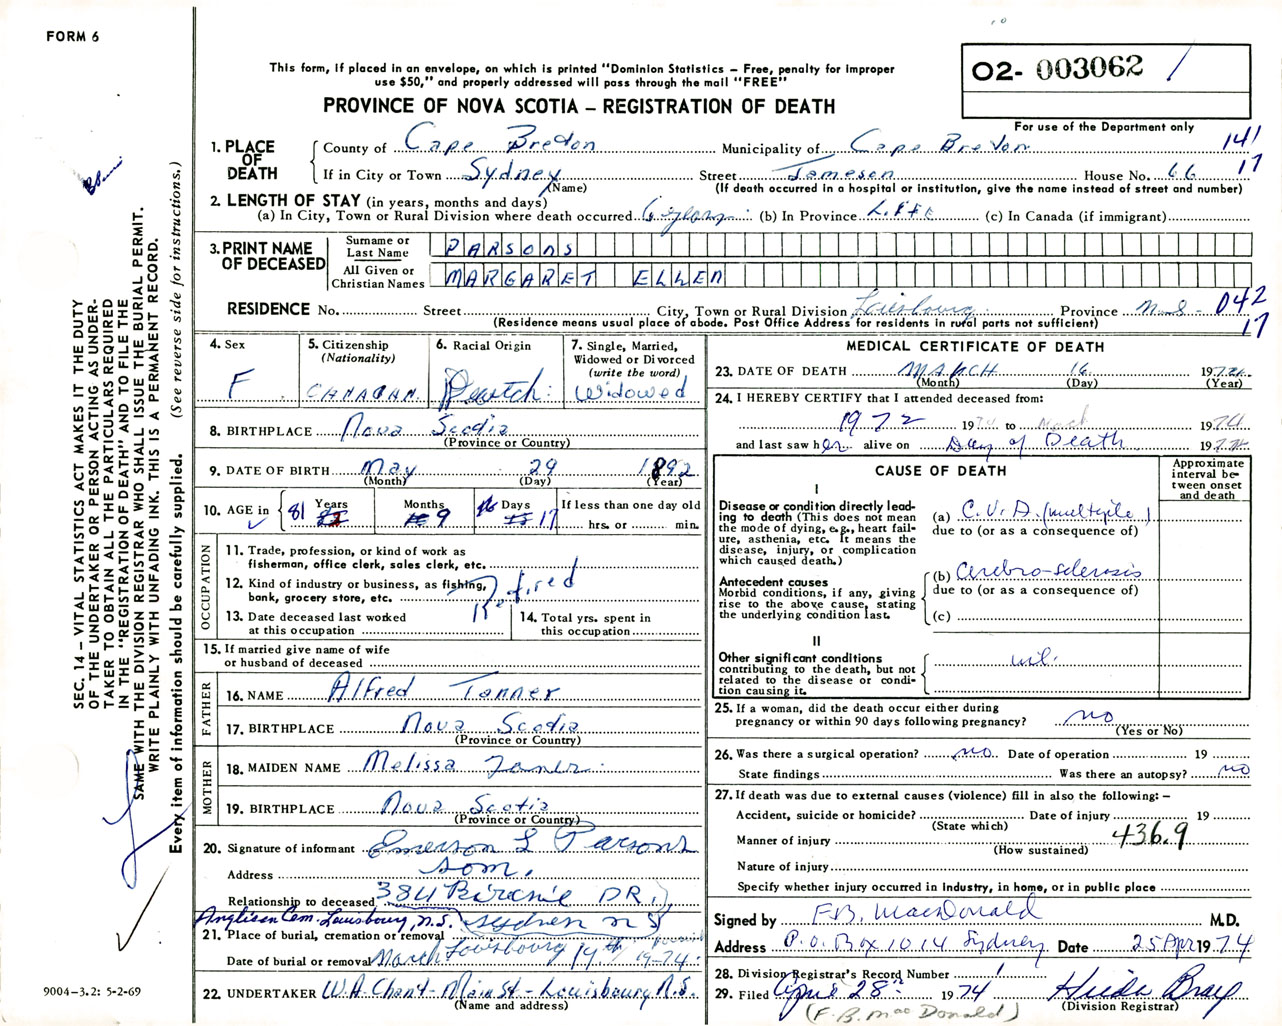 FORM 6
This form, if placed in an envelope, on which is printed "Dominion Statistics – Free, penalty for improper
use $50," and properly addressed will pass through the mail "FREE"
PROVINCE OF NOVA SCOTIA – REGISTRATION OF DEATH
02- 003062 /
For use of the Department only
141
17
1. PLACE OF DEATH
County of Cape Breton Municipality of Cape Breton
If in City or Town Sydney Street Jameson House No. 66
(Name) (If death occurred in a hospital or institution, give the name instead of street and number)
2. LENGTH OF STAY (in years, months and days)
(a) In City, Town or Rural Division where death occurred 6 years (b) In Province LIFE (c) In Canada (if immigrant)
3. PRINT NAME OF DECEASED
Surname or Last Name PARSONS
All Given or Christian Names MARGARET ELLEN
RESIDENCE No. Street City, Town or Rural Division Louisbourg Province N.S. 042
17
(Residence means usual place of abode. Post Office Address for residents in rural parts not sufficient)
4. Sex F
5. Citizenship (Nationality) CANADIAN
6. Racial Origin Deutch
7. Single, Married, Widowed or Divorced (write the word) Widowed
8. BIRTHPLACE Nova Scotia
(Province or Country)
9. DATE OF BIRTH May 29 1892
(Month) (Day) (Year)
10. AGE in 81 Years Months 9 Days 17 If less than one day old
hrs. or min.
OCCUPATION
11. Trade, profession, or kind of work as
fisherman, office clerk, sales clerk, etc.
12. Kind of industry or business, as fishing,
bank, grocery store, etc. Retired
13. Date deceased last worked
at this occupation
14. Total yrs. spent in
this occupation
15. If married give name of wife
or husband of deceased
FATHER
16. NAME Alfred Tanner
17. BIRTHPLACE Nova Scotia
(Province or Country)
MOTHER
18. MAIDEN NAME Melissa Taner
19. BIRTHPLACE Nova Scotia
(Province or Country)
20. Signature of informant Emerson L Parsons
Address son.
Relationship to deceased 384 Birchie DR.
Anglisan Cem. Louisbourg, N.S. Sydney N S
21. Place of burial, cremation or removal Louisbourg
Date of burial or removal March 19th 1974
22. UNDERTAKER W.A. Chant - Main St - Louisbourg N.S.
(Name and address)
MEDICAL CERTIFICATE OF DEATH
23. DATE OF DEATH MARCH 16 1974
(Month) (Day) (Year)
24. I HEREBY CERTIFY that I attended deceased from:
1972 19 to March 1974
and last saw her alive on Day of Death 1974
CAUSE OF DEATH
Approximate interval between onset and death
I
Disease or condition directly lead-
ing to death (This does not mean
the mode of dying, e.g., heart fail-
ure, asthenia, etc. It means the
disease, injury, or complication
which caused death.)
(a) C.V.A. (multiple)
due to (or as a consequence of)
Antecedent causes
Morbid conditions, if any, giving
rise to the above cause, stating
the underlying condition last.
(b) Cerebro-sclerosis
due to (or as a consequence of)
(c)
II
Other significant conditions
contributing to the death, but not
related to the disease or condi-
tion causing it.
nil.
25. If a woman, did the death occur either during
pregnancy or within 90 days following pregnancy? no
(Yes or No)
26. Was there a surgical operation? no. Date of operation 19
State findings Was there an autopsy? no
27. If death was due to external causes (violence) fill in also the following: –
Accident, suicide or homicide? Date of injury 19
(State which)
Manner of injury 436.9
(How sustained)
Nature of injury
Specify whether injury occurred in Industry, in home, or in public place
Signed by F.B. MacDonald M.D.
Address P.O. Box 1014 Sydney Date 25 Apr 1974
28. Division Registrar's Record Number 1
29. Filed April 28th 1974 Hilda Bray
(Division Registrar)
(F. B. MacDonald)
SEC. 14 – VITAL STATISTICS ACT MAKES IT THE DUTY
OF THE UNDERTAKER OR PERSON ACTING AS UNDER-
TAKER TO OBTAIN ALL THE PARTICULARS REQUIRED
IN THE "REGISTRATION OF DEATH" AND TO FILE THE
SAME WITH THE DIVISION REGISTRAR WHO SHALL ISSUE THE BURIAL PERMIT.
WRITE PLAINLY WITH UNFADING INK. THIS IS A PERMANENT RECORD.
Every item of information should be carefully supplied. (See reverse side for instructions.)
9004-3.2: 5-2-69